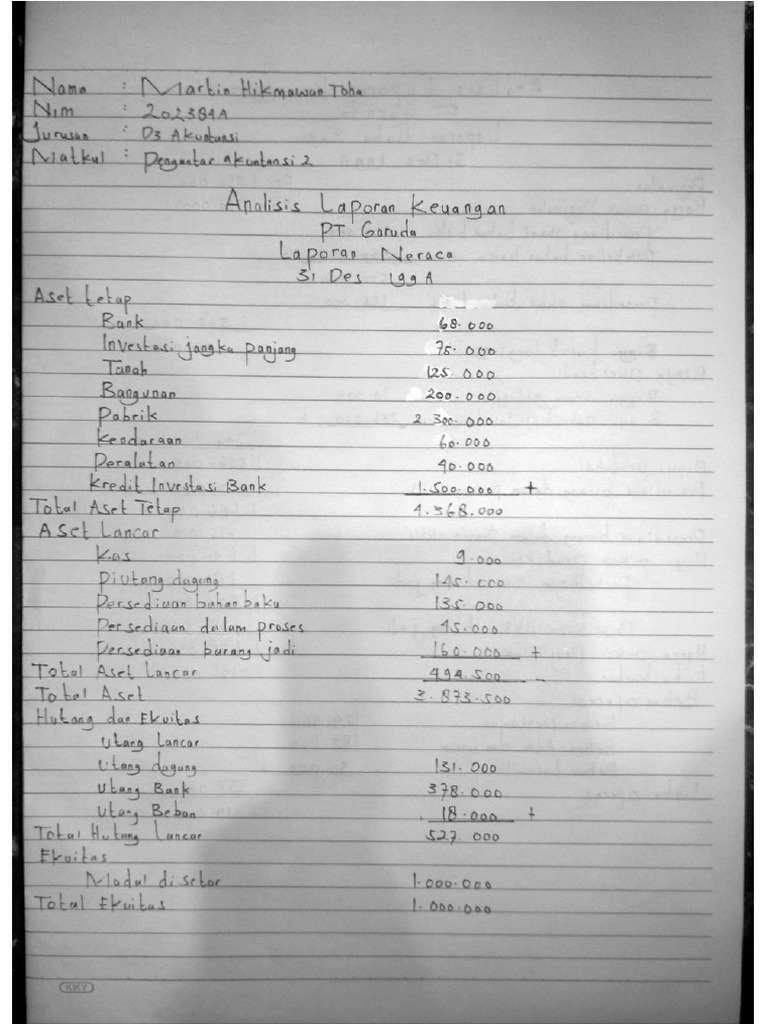 Nama : Martin Hikmawan Toha
Nim : 202384A
Jurusan : D3 Akuntansi
Matkul : Pengantar akuntansi 2
Analisis Laporan Keuangan
PT Garuda
Laporan Neraca
31 Des 199A
Aset tetap
Bank 68.000
Investasi jangka panjang 75.000
Tanah 125.000
Bangunan 200.000
Pabrik 2.300.000
Kendaraan 60.000
Peralatan 40.000
Kredit Investasi Bank 1.500.000 +
Total Aset Tetap 4.368.000
Aset Lancar
Kas 9.000
Piutang dagang 145.000
Persediaan bahan baku 135.000
Persediaan dalam proses 45.000
Persediaan barang jadi 160.000 +
Total Aset Lancar 494.500 -
Total Aset 3.873.500
Hutang dan Ekuitas
Utang Lancar
Utang dagang 131.000
Utang Bank 378.000
Utang Beban 18.000 +
Total Hutang Lancar 527.000
Ekuitas
Modal disetor 1.000.000
Total Ekuitas 1.000.000
KKY